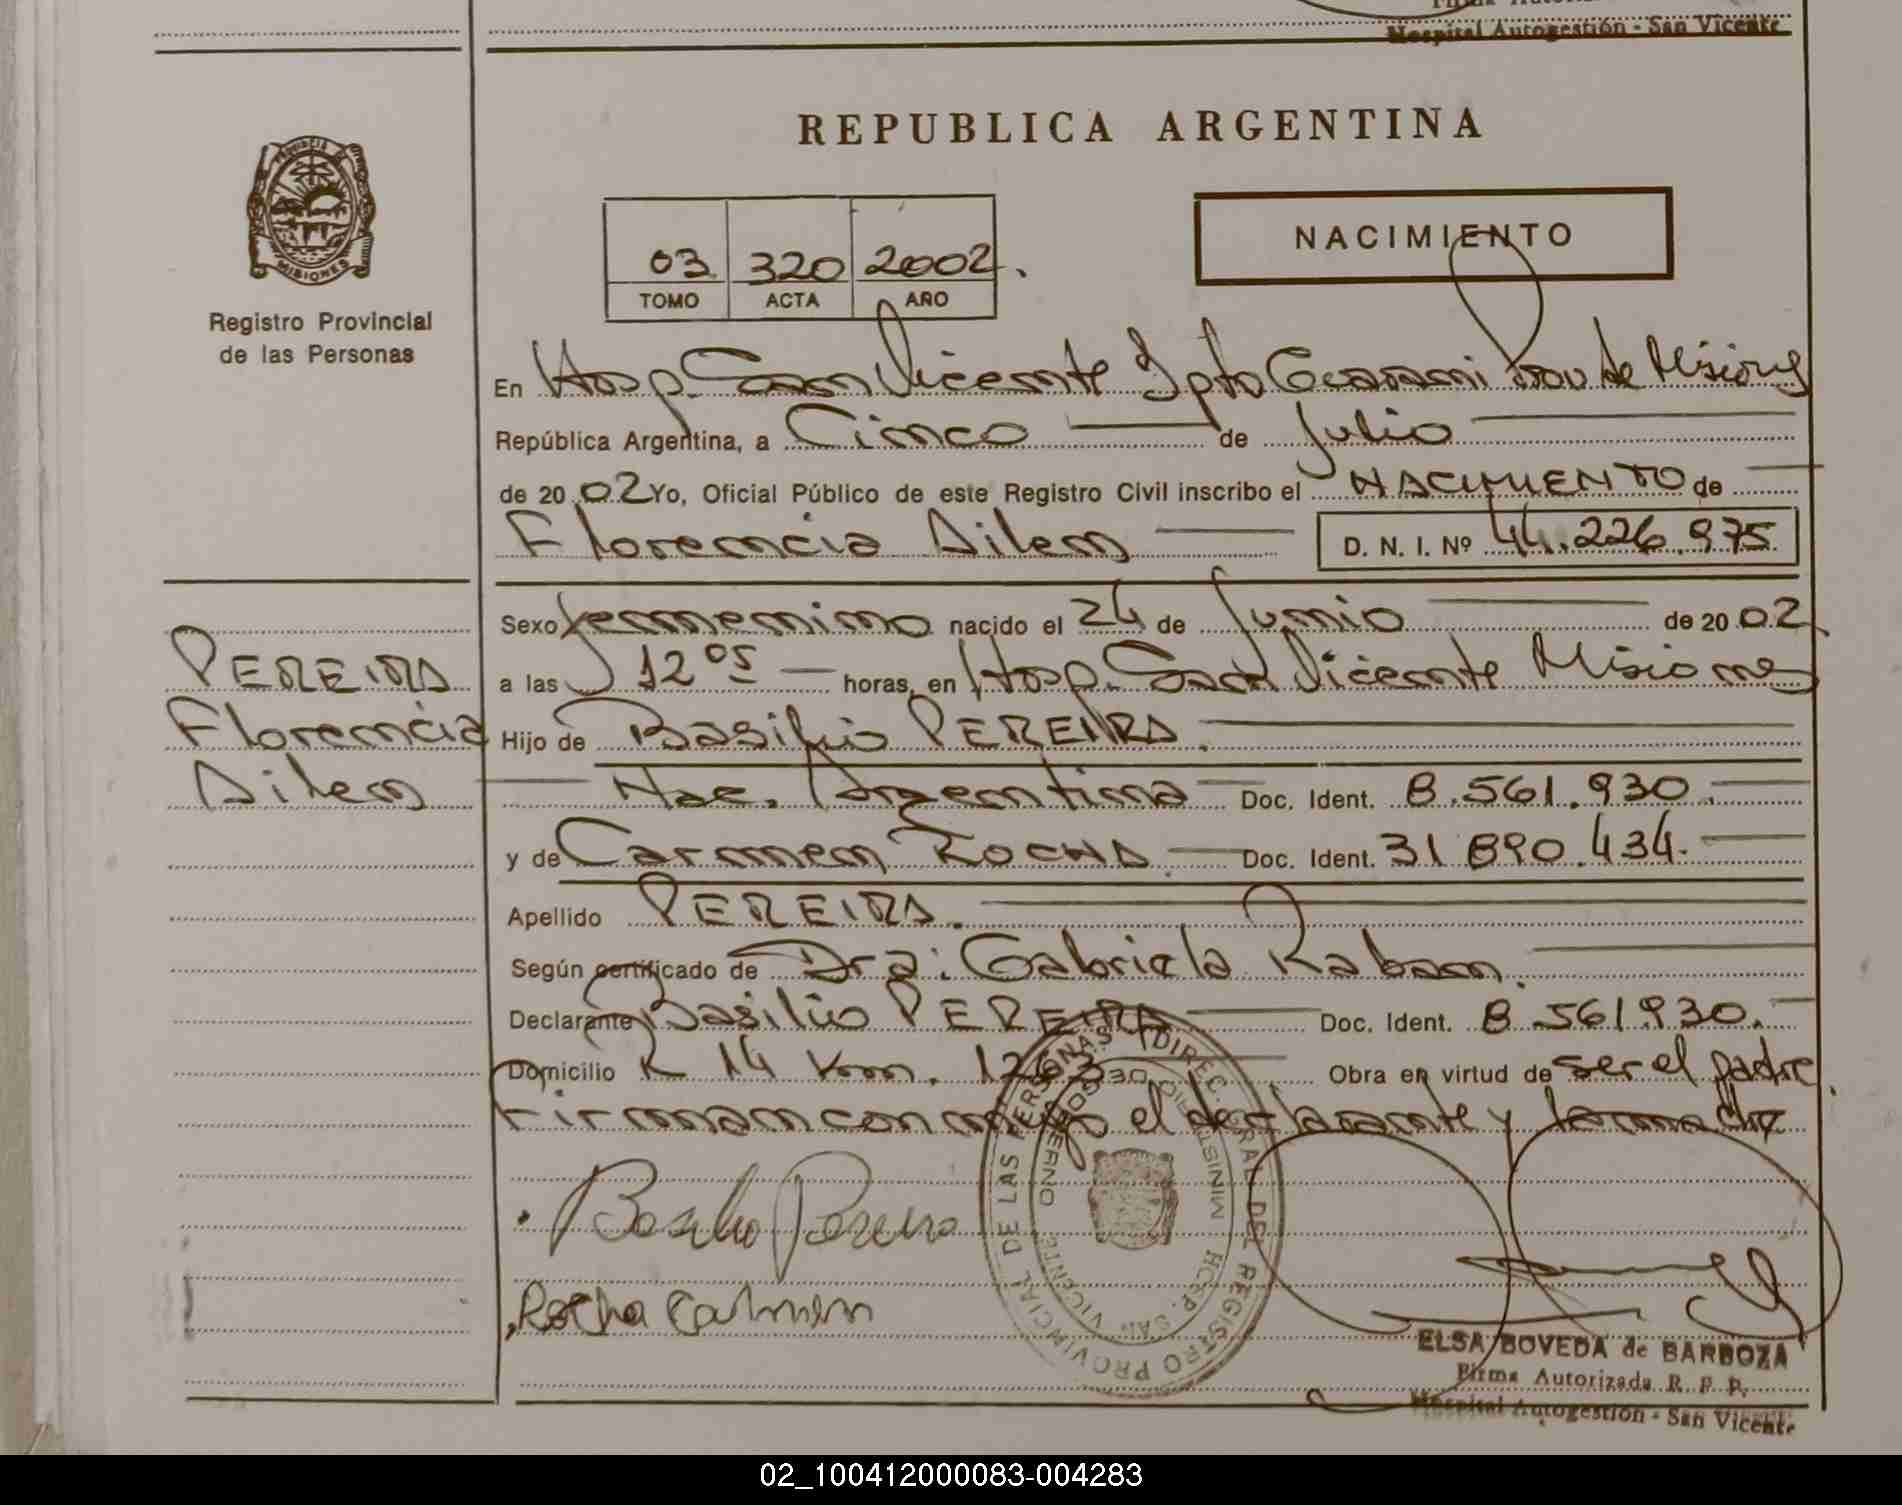 Firma Autoriz
Hospital Autogestión - San Vicente
REPUBLICA ARGENTINA
PROVINCIA DE
MISIONES
Registro Provincial
de las Personas
03 320 2002.
TOMO ACTA AÑO
NACIMIENTO
En Hosp. San Vicente Dpto Guarani Prov de Misiones
República Argentina, a Cinco de Julio
de 2002 Yo, Oficial Público de este Registro Civil inscribo el NACIMIENTO de
Florencia Ailen D. N. I. Nº 44.226.975
PEREIRA
Florencia
Ailen
Sexo femenino nacido el 24 de Junio de 2002
a las 12 05 horas, en Hosp. San Vicente Misiones
Hijo de Basilio PEREIRA.
Nac. Argentina Doc. Ident. 8.561.930.
y de Carmen ROCHA Doc. Ident. 31 890.434.
Apellido PEREIRA.
Según certificado de Dra: Gabriela Raban.
Declarante Basilio PEREIRA Doc. Ident. 8.561930.
Domicilio R 14 Km. 1263 Obra en virtud de ser el padre.
Firman conmigo el declarante y la madre
Basilio Pereira
Rocha Carmen
DIREC. GRAL. DEL REGISTRO PROVINCIAL DE LAS PERSONAS
MINISTERIO DE GOBIERNO
HOSP. SAN VICENTE
ELSA BOVEDA de BARBOZA
Firma Autorizada R. P. P.
Hospital Autogestión - San Vicente
02_100412000083-004283